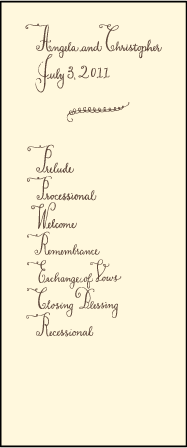 Angela and Christopher
July 3, 2011
Prelude
Processional
Welcome
Remembrance
Exchange of Vows
Closing Blessing
Recessional